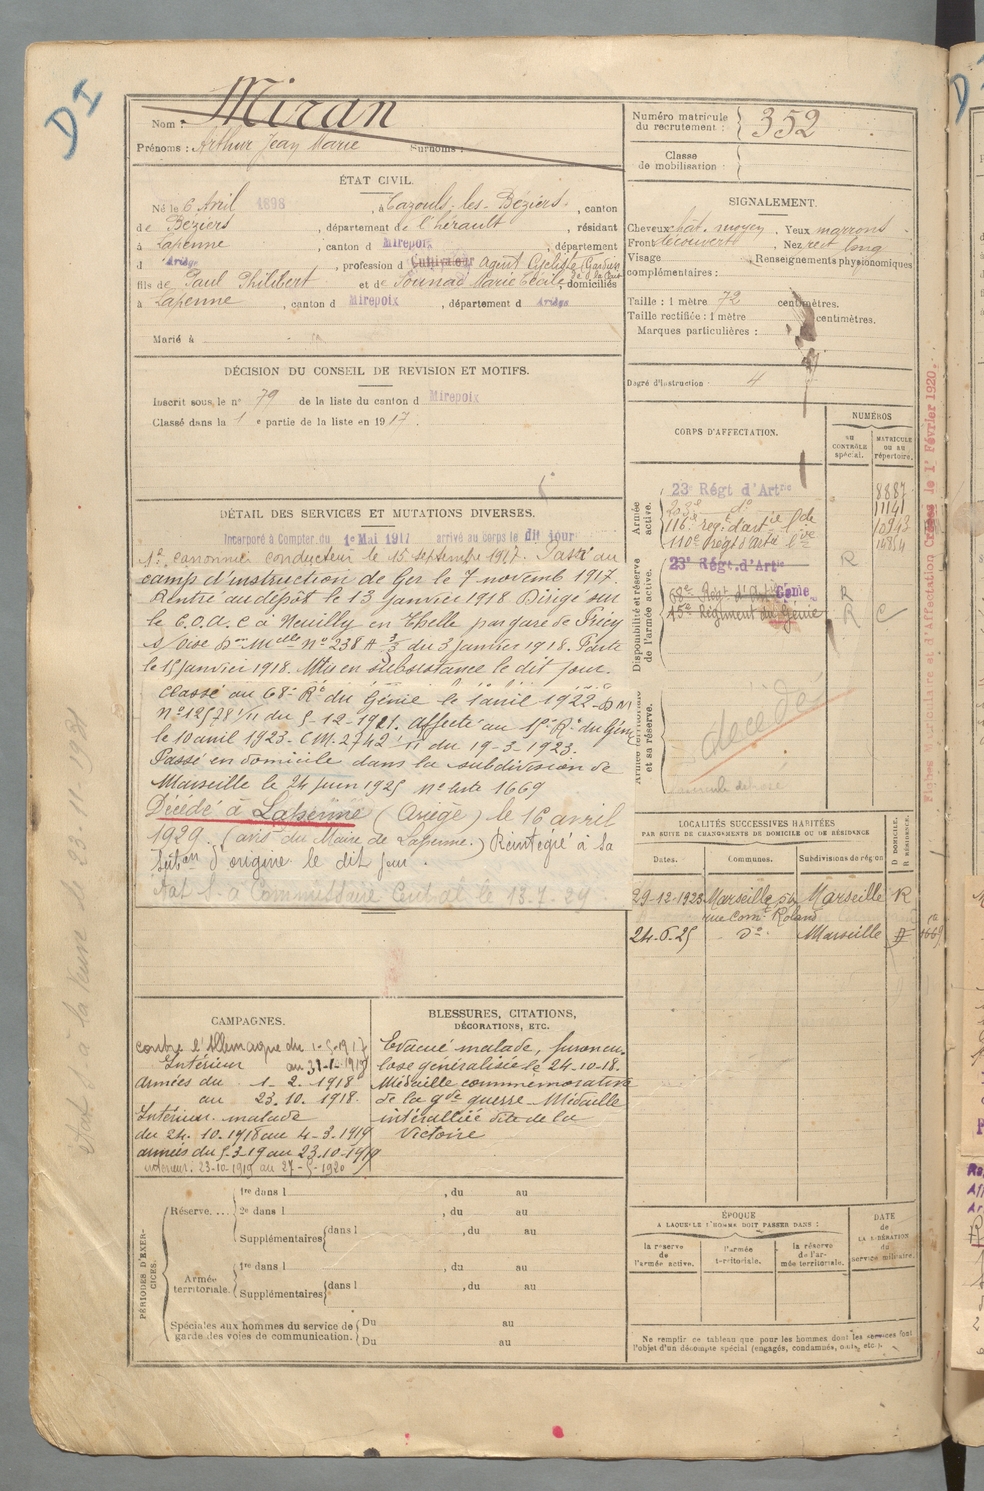 DI
Nom : Miran
Prénoms : Arthur Jean Marie Surnoms :
ÉTAT CIVIL.
Né le 6 Avril 1898, à Cazouls-les-Béziers, canton
de Béziers, département de l'hérault, résidant
à Lapenne, canton d Mirepoix, département
d Ariège, profession d Cultivateur Agent Cycliste (Gardien de la Paix)
fils de Paul Philibert et de Marie Cécile, domiciliés
à Lapenne, canton d Mirepoix, département d Ariège
Marié à
DÉCISION DU CONSEIL DE REVISION ET MOTIFS.
Inscrit sous le n° 79 de la liste du canton d Mirepoix
Classé dans la 1 e partie de la liste en 1917.
DÉTAIL DES SERVICES ET MUTATIONS DIVERSES.
Incorporé à Compter du 1er Mai 1917 arrivé au corps le dit jour
1er canonnier conducteur le 15 septembre 1917. Passé au
camp d'instruction de Ger le 7 novemb 1917.
Rentré au dépôt le 13 janvier 1918 Dirigé sur
le C.O.A.C à Neuilly en Thelle par gare de Précy
s/ Oise Don Melle n° 238 A 3/3 du 3 janvier 1918. Parti
le 15 janvier 1918. Mis en subsistance le dit jour.
Classé au 68e Rt du Génie le 1 avril 1922 - D M
N° 12578 1/11 du 5-12-1921. Affecté au 15e Rt du Génie
le 10 avril 1923 - C.M. 2742 1/11 du 19-3-1923.
Passé en domicile dans la subdivision de
Marseille le 24 juin 1925 n° liste 1669
Décédé à Lapenne (Ariège) le 16 avril
1929. (avis du Maire de Lapenne.) Réintégré à sa
Subon d'origine le dit jour.
Etat S. à Commissaire Central le 13-7-29.
CAMPAGNES.
contre l'Allemagne du 1-5-1917
Intérieur au 31-1-1918
armées du 1-2-1918
au 23.10.1918.
Intérieur malade
du 24.10.1918 au 4-3-1919
armées du 5-3-19 au 23.10-1919
intérieur. 23-10-1919 au 27-5-1920
BLESSURES, CITATIONS,
DÉCORATIONS, ETC.
Evacué malade, furoncu-
lose généralisée le 24-10-18.
Médaille commémorative
de la gde guerre - Médaille
interalliée dite de la
Victoire
PÉRIODES D'EXERCICES.
Réserve....
1re dans l , du au
2e dans l , du au
Supplémentaires dans l , du au
Armée territoriale.
1re dans l , du au
Supplémentaires dans l , du au
Spéciales aux hommes du service de garde des voies de communication. Du au
Du au
Numéro matricule du recrutement : 352
Classe de mobilisation :
SIGNALEMENT.
Cheveux chât. moyen. Yeux marrons
Front découvert, Nez rect long
Visage Renseignements physionomiques
complémentaires :
Taille : 1 mètre 72 centimètres.
Taille rectifiée : 1 mètre centimètres.
Marques particulières :
Degré d'instruction : 4
CORPS D'AFFECTATION.
NUMÉROS
AU CONTRÔLE spécial.
MATRICULE OU AU répertoire.
Armée active.
23e Régt d'Artrie 8887
203e do 11141
116e rég. d'artie lde 10943
110e Régt d'artie lde 14854
Disponibilité et réserve de l'armée active.
23e Régt. d'Artie R
68e Régt d'Artie Génie R
15e Régiment du Génie R C
Armée territoriale et sa réserve.
décédé
LOCALITÉS SUCCESSIVES HABITÉES
PAR SUITE DE CHANGEMENTS DE DOMICILE OU DE RÉSIDENCE.
Dates. Communes. Subdivisions de région D DOMICILE. R RÉSIDENCE.
29-12-1923 Marseille Marseille R
rue Comt Roland
24.6.25 do Marseille D 1669
ÉPOQUE
A LAQUELLE L'HOMME DOIT PASSER DANS :
la réserve de l'armée active.
l'armée territoriale.
la réserve de l'armée territoriale.
DATE de LA LIBÉRATION du service militaire.
Ne remplir ce tableau que pour les hommes dont les services font
l'objet d'un décompte spécial (engagés, condamnés, omis, etc.).
Fiches Matriculaire et d'Affectation Créées le 1er Février 1920.